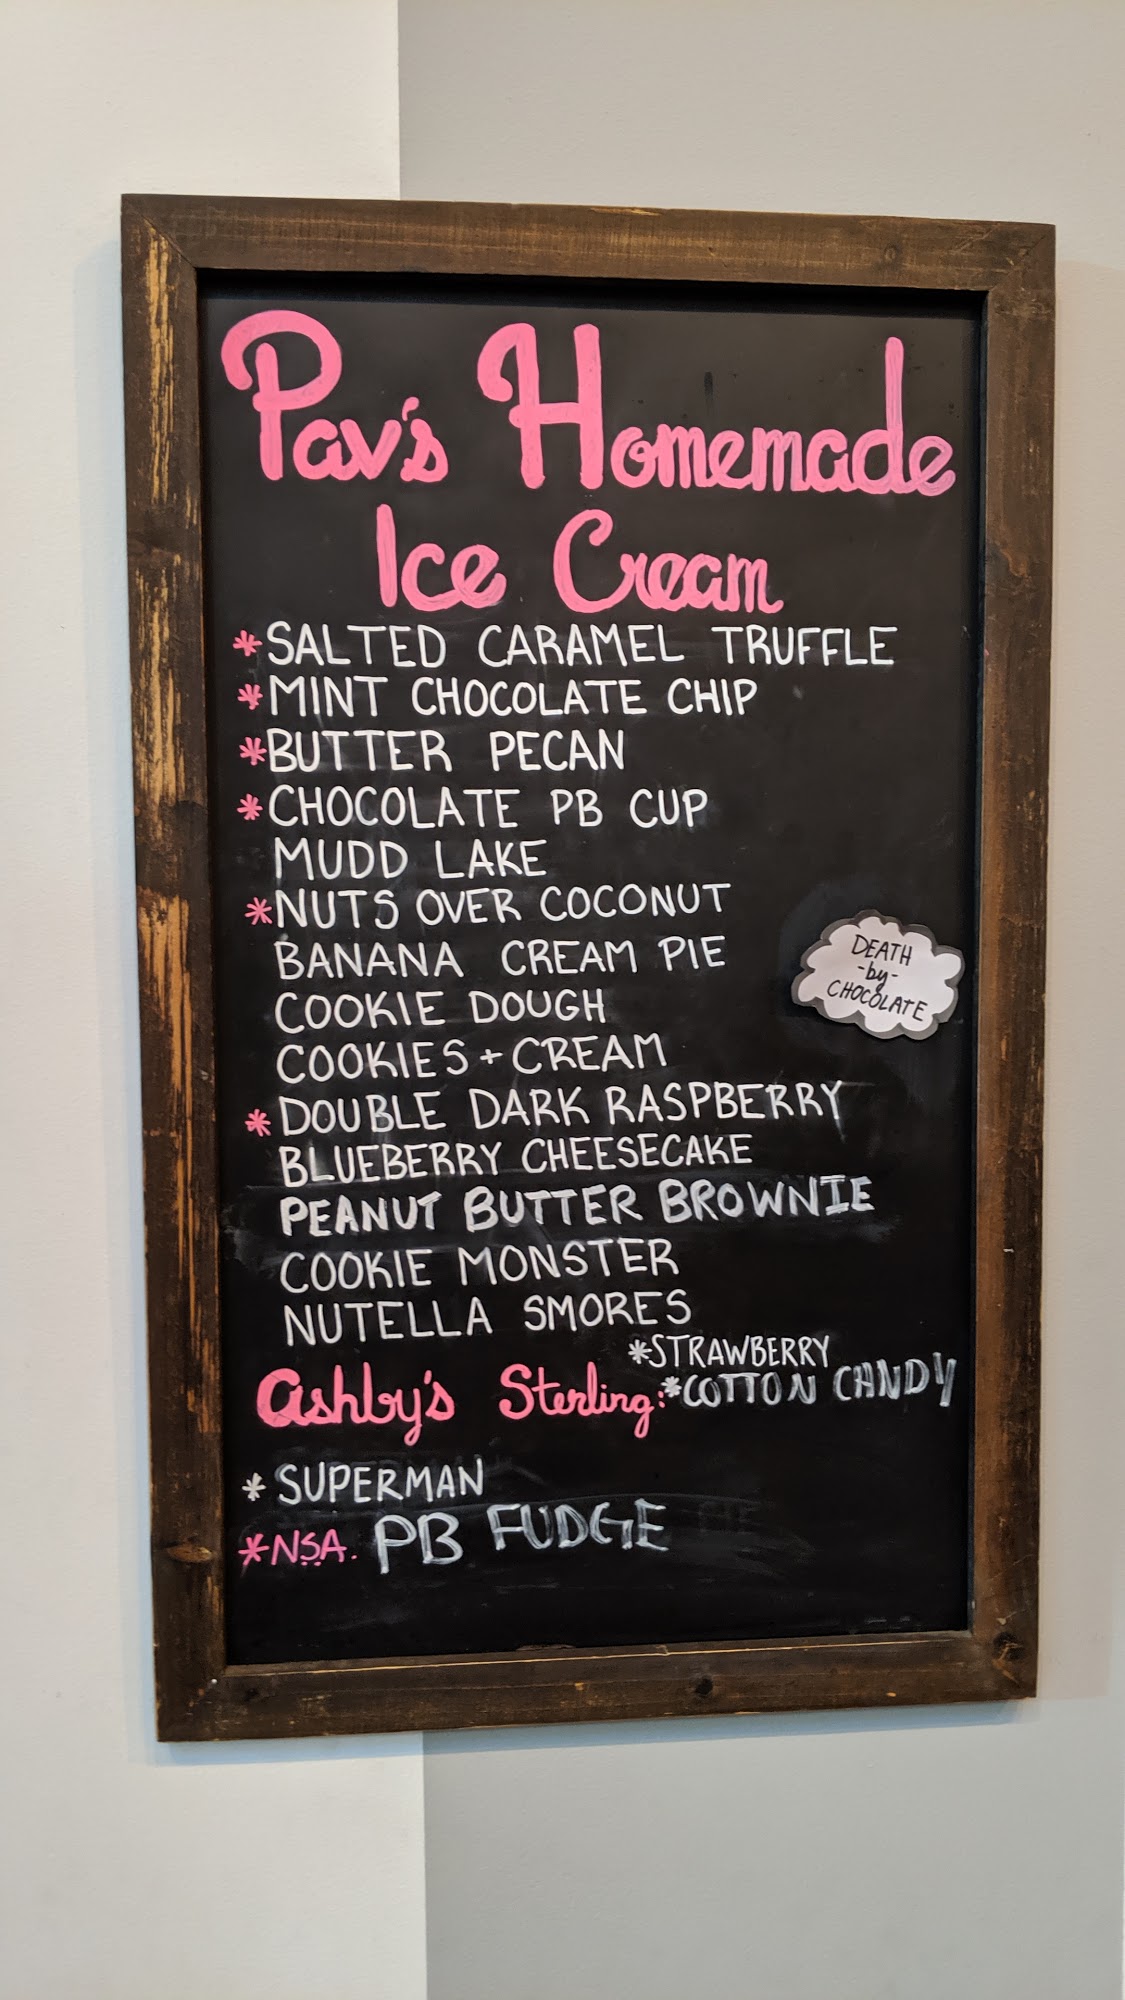 Pav's Homemade
Ice Cream
*SALTED CARAMEL TRUFFLE
*MINT CHOCOLATE CHIP
*BUTTER PECAN
*CHOCOLATE PB CUP
MUDD LAKE
*NUTS OVER COCONUT
BANANA CREAM PIE
COOKIE DOUGH
COOKIES + CREAM
*DOUBLE DARK RASPBERRY
BLUEBERRY CHEESECAKE
PEANUT BUTTER BROWNIE
COOKIE MONSTER
NUTELLA SMORES
DEATH
-by-
CHOCOLATE
*STRAWBERRY
Ashby's Sterling: *COTTON CANDY
* SUPERMAN
*N.S.A. PB FUDGE